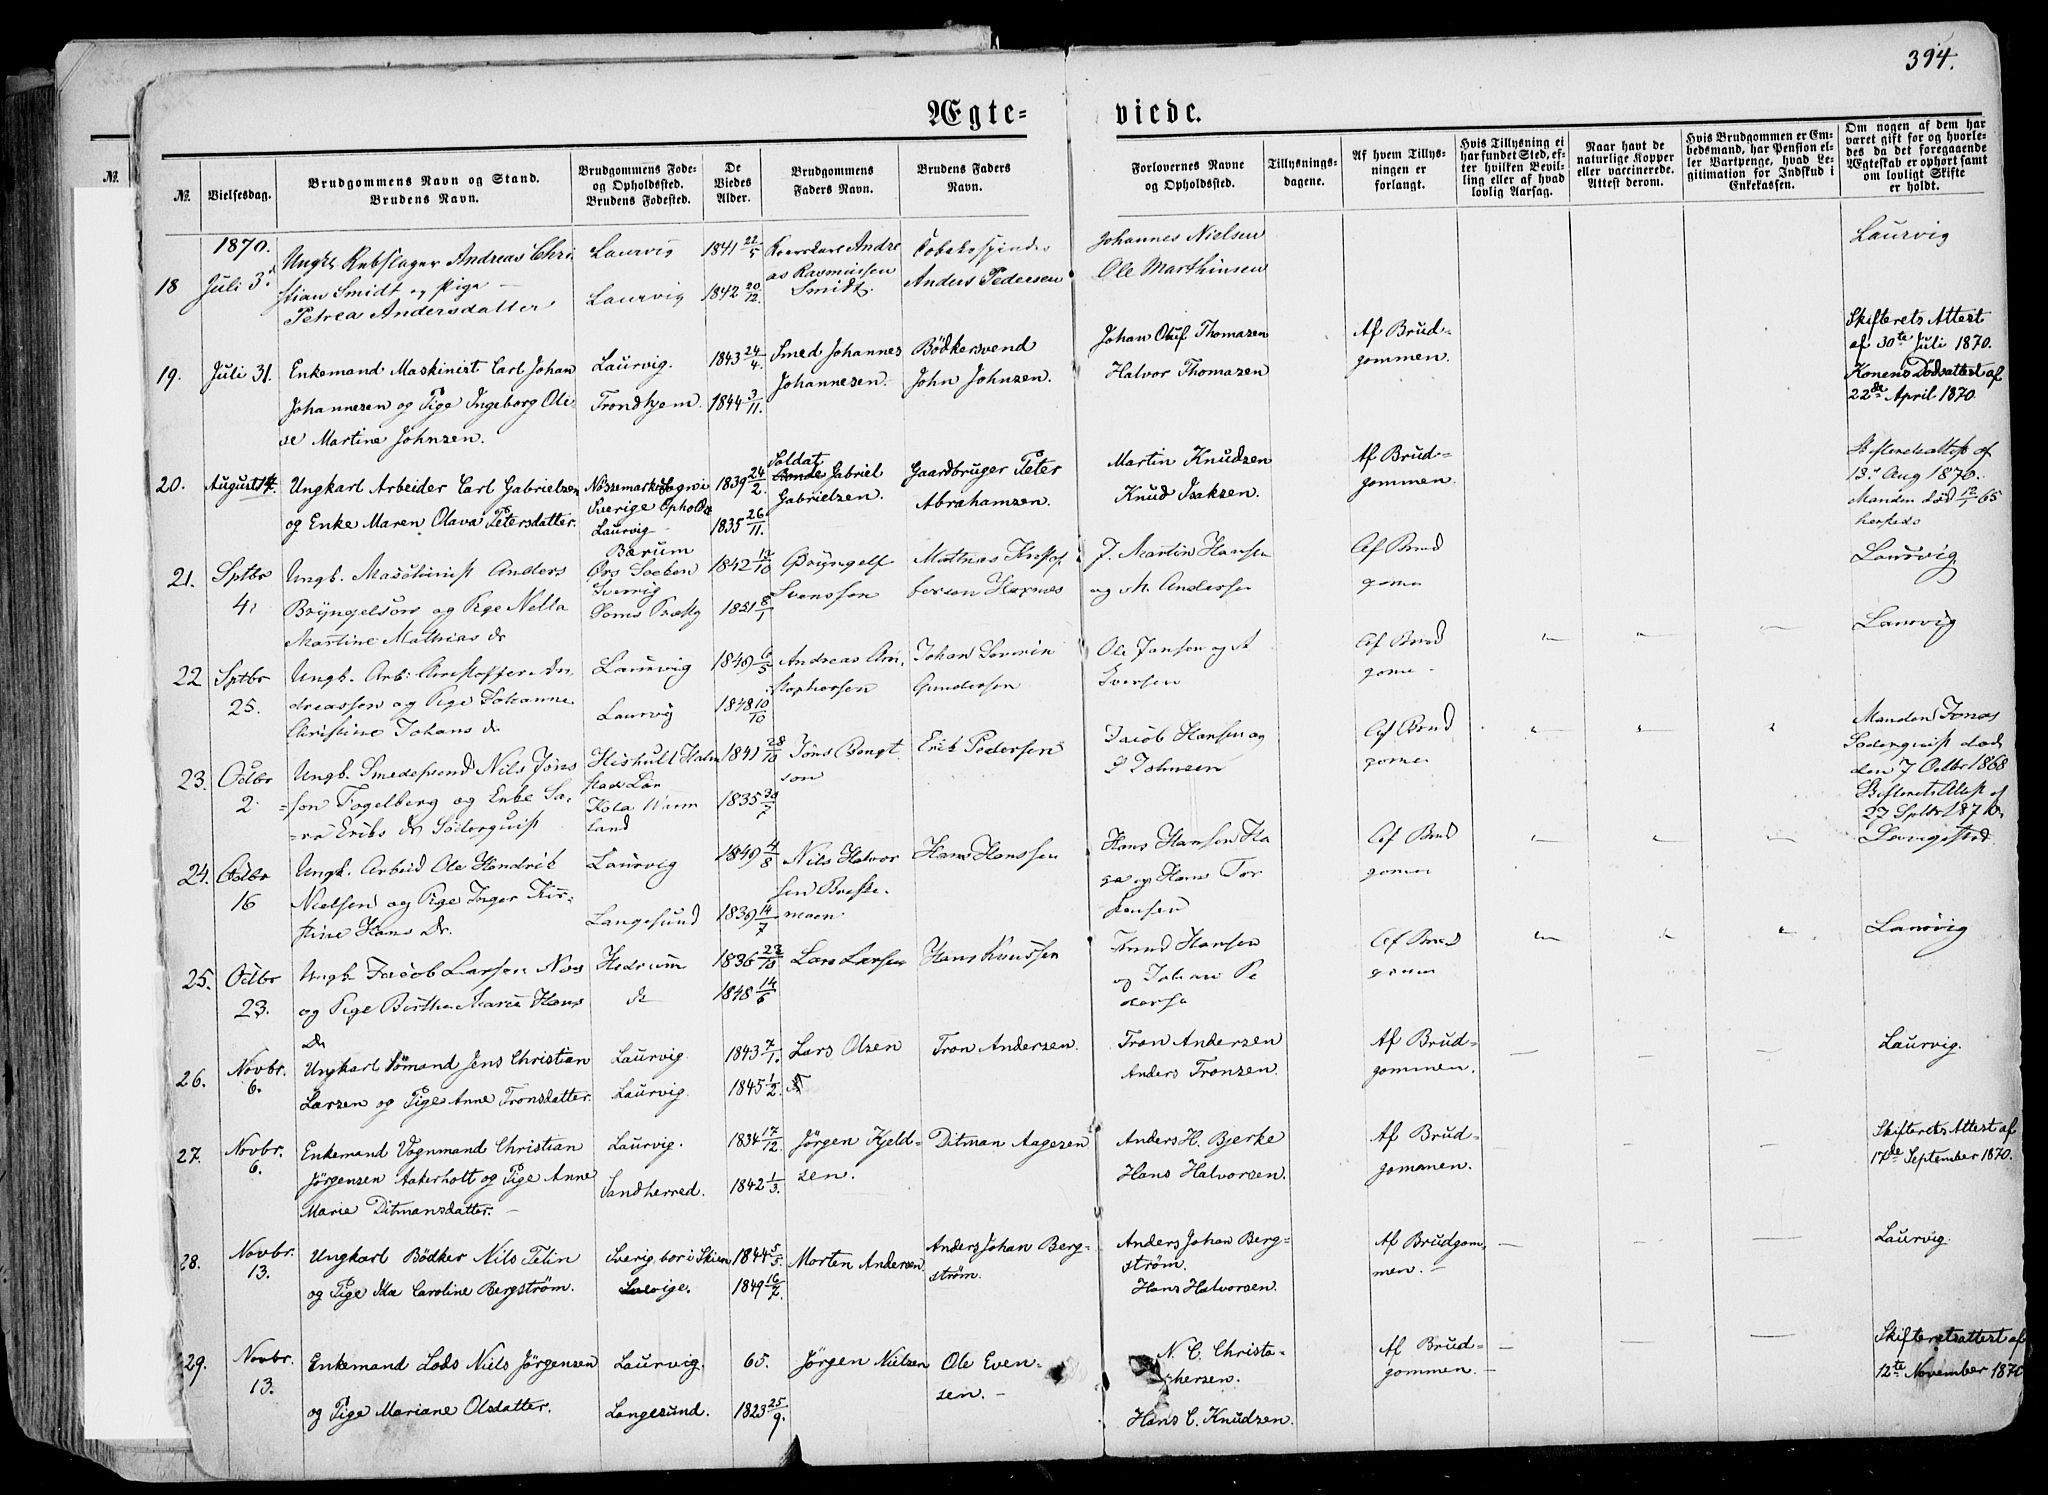 394.
Ægte-
viede.
№.
№.
Vielsesdag.
Brudgommens Navn og Stand.
Brudens Navn.
Brudgommens Føde-
og Opholdssted.
Brudens Fødested.
De
Viedes
Alder.
Brudgommens
Faders Navn.
Brudens Faders
Navn.
Forlovernes Navne
og Opholdssted.
Tillysnings-
dagene.
Af hvem Tillys-
ningen er
forlangt.
Hvis Tillysning ei
har fundet Sted, ef-
ter hvilken Bevil-
ling eller af hvad
lovlig Aarsag.
Naar havt de
naturlige Kopper
eller vaccinerede.
Attest derom.
Hvis Brudgommen er Em-
bedsmand, har Pension el-
ler Vartpenge, hvad Le-
gitimation for Indskud i
Enkekassen.
Om nogen af dem har
været gift før og hvorle-
des da det foregaaende
Ægteskab er ophørt samt
om lovligt Skifte
er holdt.
1870.
18 Juli 3.
Ungk. Rebslager Andreas Chri
stian Smidt og Pige
Petrea Andersdatter
Laurvig
Laurvig
1841 22/5
1842 20/12
Andre
as Rasmussen
Smidt.
Anders Pedersen
Johannes Nielsen
Ole Marthinsen
Laurvig
19. Juli 31.
Enkemand Maskinist Carl Johan
Johannesen og Pige Ingeborg Oli-
se Martine Johnsen.
Laurvig.
Trondhjem.
1843 24/4.
1844 3/11.
Smed Johannes
Johannesen.
Bödkersvend
John Johnzen.
Johan Oluf Thomasen
Halvor Thomasen
Af Brud-
gommen.
Skifterets Attest
af 30te Juli 1870.
Konens Dödsattest af
22de April 1870.
20. August 14.
Ungkarl Arbeider Carl Gabrielsen
og Enke Maren Olava Petersdatter.
Nössemarks Sogn i
Sverige Opholdr
Laurvig
Bærum
1839 24/2.
1835 26/11.
Soldat
Gabriel
Gabrielzen.
Gaardbruger Peter
Abrahamzen.
Martin Knudzen
Knud Isakzen.
Af Brud-
gommen.
Skifteretsattest af
13. Aug 1870.
Manden död 12/1 65
21. Sptbr
4.
Ungk. Maschinist Anders
Bryngelsors og Pige Nella
Martine Mathias dr
Örs Socken
Sverrig
1842 12/10
1851 8/1
Bryngelf
Svenssen
Mathias Kristof
fersen
J. Martin Hansen
og M. Andersen
Af Brud
gomen
Laurvig
22 Sptbr
25.
Ungk. Arb: Christoffer An-
dreassen og Pige Johanne
Christine Johans dr
Laurvig
Laurvig
1849 6/5
1848 10/10
Andreas Chri-
stophersen
Johan Severin
Gundersen
Ole Jansen og A
Iversen
Af Brud
gome
Laurvig
23. Octbr
2.
Ungk. Smedesvend Nils Jöns
son Fogelberg og Enke Sa-
ra Eriks dr Söderquist
Hishult Halm
stads Län
Köla Werm
land
1841 28/10
1835 30/7
Jöns Bengt
son
Erik Pedersen
Jacob Hansen og
Johnsen
Af Brud
gomen
Manden Jonas
Söderquist död
den 7 Octbr 1868
Skifterets Attest af
27 Sptbr 1870
24. Octbr
16
Ungk. Arbeid Ole Hendrik
Nielsen og Pige Inger Kir-
stine Hans dr.
Laurvig
Langesund
1849 4/8
1839 14/7
Nils Halvor
sen
Hans Hanssen
Hans Hansen
og Hans Tor
Af Brud
gomen
25. Octbr
23.
Ungk Jacob Larsen Næs
og Pige Birthe Marie Hans
Dr
Hedrum
dr
1836 23/10
1848 14/6
Lars Larsen
Hans Knudsen
Knud Hansen
og Johan Pe
dersen
Af Brud
gomen
Laurvig
26. Novbr.
6.
Ungkarl Sömand Jens Christian
Larzen og Pige Anne Tronsdatter.
Laurvig.
Laurvig.
1843 7/1.
1845 1/2.
Lars Olzen
Tron Anderzen.
Tron Anderzen
Anders Tronzen.
Af Brud-
gommen.
Laurvig.
27. Novbr.
6.
Enkemand Vognmand Christian
Jörgensen Aakerholt og Pige Anne
Marie Ditmansdatter.
Laurvig.
Sandherred.
1834 17/12.
1842 1/3.
Jörgen Kjeld-
sen.
Ditman Aagesen
Anders H. Bjerke
Hans Halvorsen.
Af Brud-
gommen.
Skifterets Attest af
17de September 1870.
28. Novbr.
13.
Ungkarl Bödker Nils Felin
og Pige Ida Caroline Bergström.
Sverig, bor i Skien
Sverige.
1844 5/5.
1849 16/7.
Morten Andersen
Anders Johan Berg-
ström.
Anders Johan Berg-
ström.
Hans Halvorsen.
Af Brudgom-
men.
Laurvig.
29. Novbr.
13.
Enkemand Lods Niels Jörgensen
og Pige Mariane Olsdatter.
Laurvig.
Langesund.
65.
1823 25/9.
Jörgen Nielsen
Ole Even-
sen.
N. C. Christo-
phersen.
Hans C. Knudzen.
Af Brud-
gommen.
Skifteretsattest af
12te November 1870